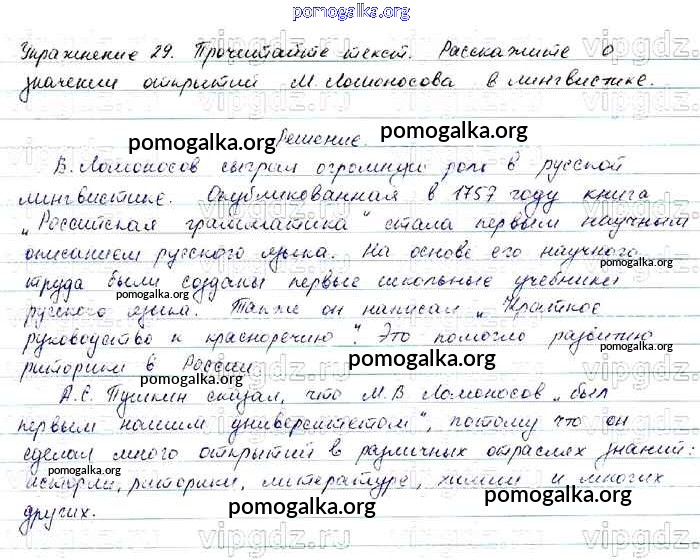 pomogalka.org
Упражнение 29. Прочитайте текст. Расскажите о
значении открытий М. Ломоносова в лингвистике.
pomogalka.org Решение. pomogalka.org
В. Ломоносов сыграл огромную роль в русской
лингвистике. Опубликованная в 1757 году книга
„Российская грамматика“ стала первым научным
описанием русского языка. На основе его научного
pomogalka.org
труда были созданы первые школьные учебники
pomogalka.org
русского языка. Также он написал „Краткое
руководство к красноречию“. Это помогло развитию
риторики в России. pomogalka.org
А.С. Пушкин сказал, что М.В Ломоносов „был
первым нашим университетом“, потому что он
сделал много открытий в различных отраслях знаний:
pomogalka.org
истории, риторики, литературе, химии и многих
pomogalka.org
других.
vipgdz.ru